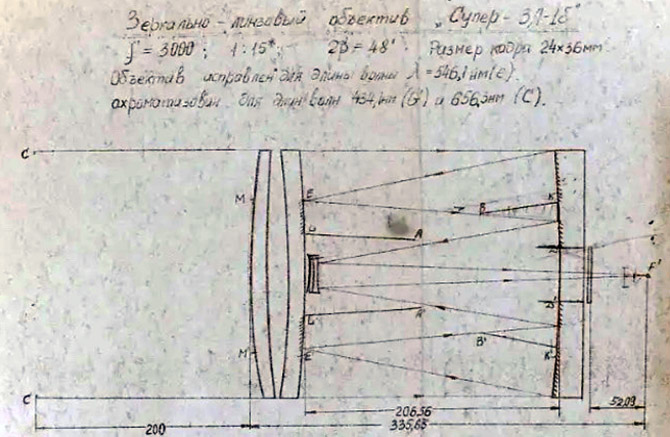 Зеркально-линзовый объектив „Супер-ЗЛ-1б"
f' = 3000 ; 1:15 ; 2β = 48' Размер кадра 24×36мм
Объектив исправлен для длины волны λ = 546,1 нм(е).
ахроматизован для длин волн 434,1нм (G') и 656,3нм (C).
C
M E K
B
L A
F'
L'
B'
M' E' K'
C
206,56 52,09
200 335,65